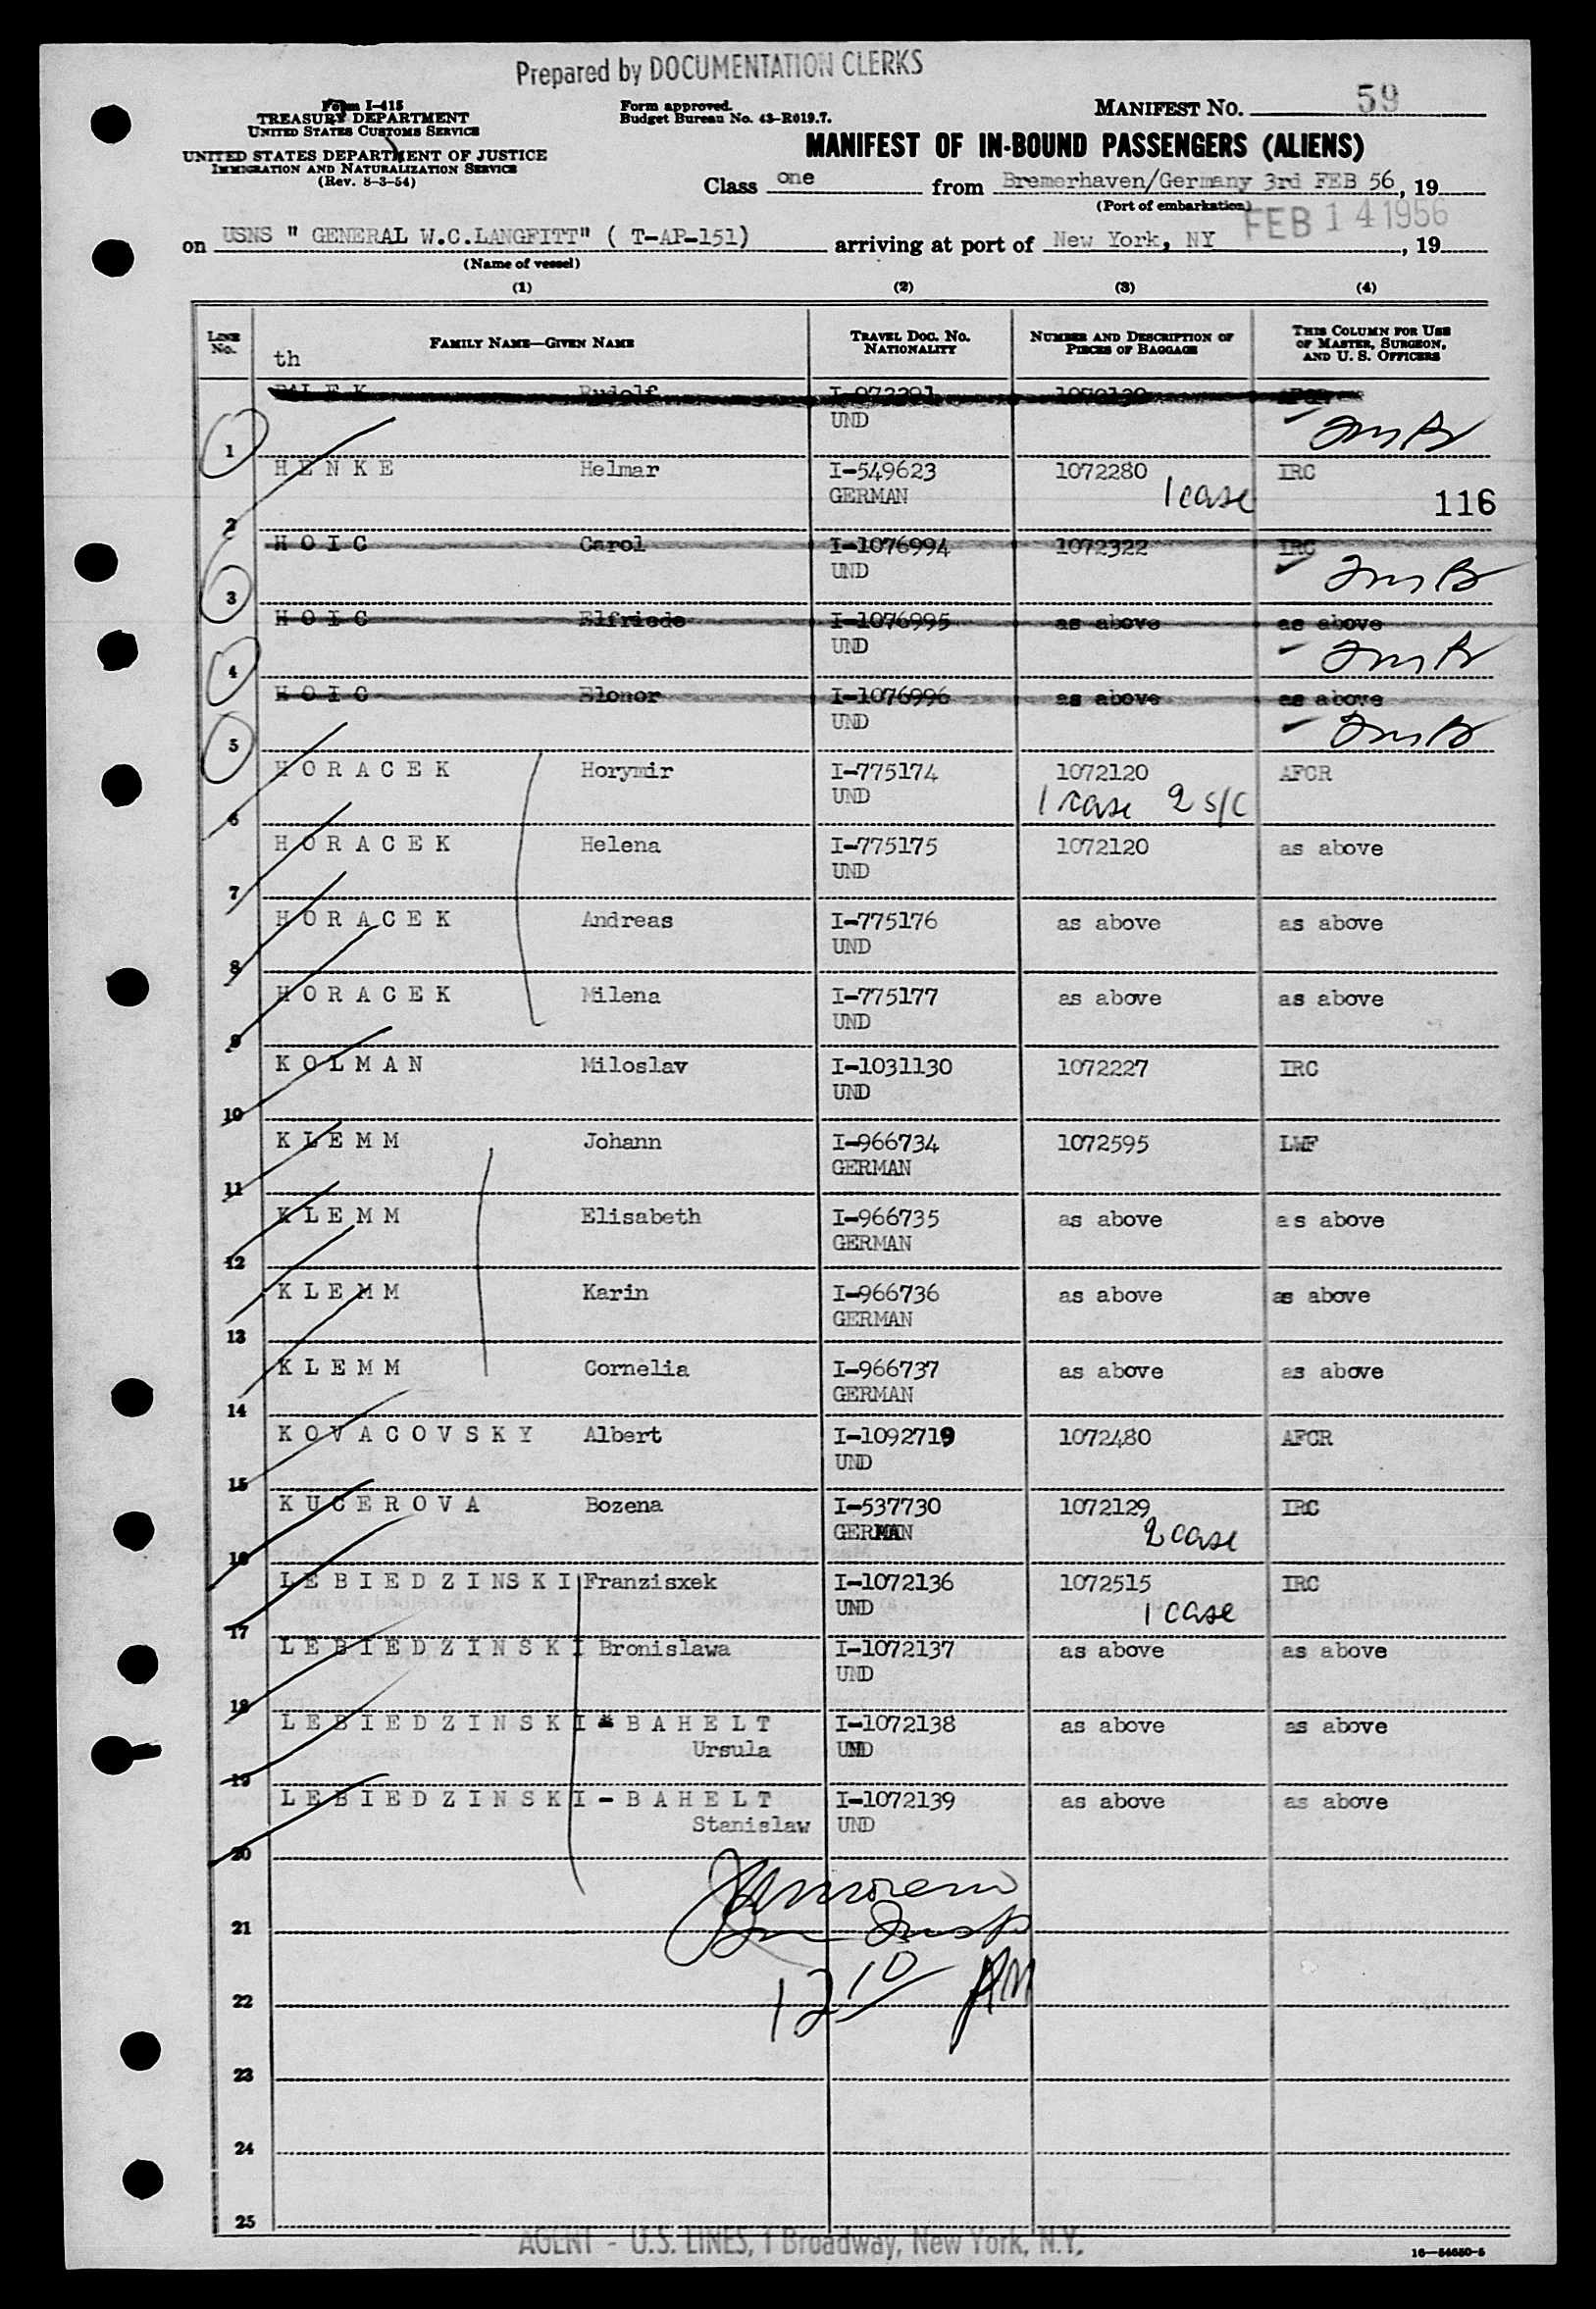 Prepared by DOCUMENTATION CLERKS
Form I-415
TREASURY DEPARTMENT
UNITED STATES CUSTOMS SERVICE
UNITED STATES DEPARTMENT OF JUSTICE
IMMIGRATION AND NATURALIZATION SERVICE
(Rev. 8-3-54)
Form approved.
Budget Bureau No. 43-R019.7.
MANIFEST NO. 59
MANIFEST OF IN-BOUND PASSENGERS (ALIENS)
Class one from Bremerhaven/Germany 3rd FEB 56, 19
(Port of embarkation)
FEB 14 1956
on USNS " GENERAL W.C.LANGFITT" ( T-AP-151) arriving at port of New York, NY, 19
(Name of vessel)
(1) (2) (3) (4)
LINE No. FAMILY NAME—GIVEN NAME TRAVEL DOC. NO. NATIONALITY NUMBER AND DESCRIPTION OF PIECES OF BAGGAGE THIS COLUMN FOR USE OF MASTER, SURGEON, AND U. S. OFFICERS
th
Rudolf
UND
1
H E N K E Helmar I-549623 1072280 IRC
GERMAN 1 case 116
2
H O I C Carol I-1076994 1072322 IRC
UND
3
H O I C Elfriede I-1076995 as above as above
UND
4
H O I C Elonor I-1076996 as above as above
UND
5
H O R A C E K Horymir I-775174 1072120 AFCR
UND 1 case 2 s/c
6
H O R A C E K Helena I-775175 1072120 as above
UND
7
H O R A C E K Andreas I-775176 as above as above
UND
8
H O R A C E K Milena I-775177 as above as above
UND
9
K O L M A N Miloslav I-1031130 1072227 IRC
UND
10
K L E M M Johann I-966734 1072595 LWF
GERMAN
11
K L E M M Elisabeth I-966735 as above as above
GERMAN
12
K L E M M Karin I-966736 as above as above
GERMAN
13
K L E M M Cornelia I-966737 as above as above
GERMAN
14
K O V A C O V S K Y Albert I-1092719 1072480 AFCR
UND
15
K U C E R O V A Bozena I-537730 1072129 IRC
GERMAN 2 case
16
L E B I E D Z I N S K I Franzisxek I-1072136 1072515 IRC
UND 1 case
17
L E B I E D Z I N S K I Bronislawa I-1072137 as above as above
UND
18
L E B I E D Z I N S K I - B A H E L T I-1072138 as above as above
Ursula UND
19
L E B I E D Z I N S K I - B A H E L T I-1072139 as above as above
Stanislaw UND
20
21
22 12 10 AM
23
24
25
AGENT - U.S. LINES, 1 Broadway, New York, N.Y.
16—54650-5